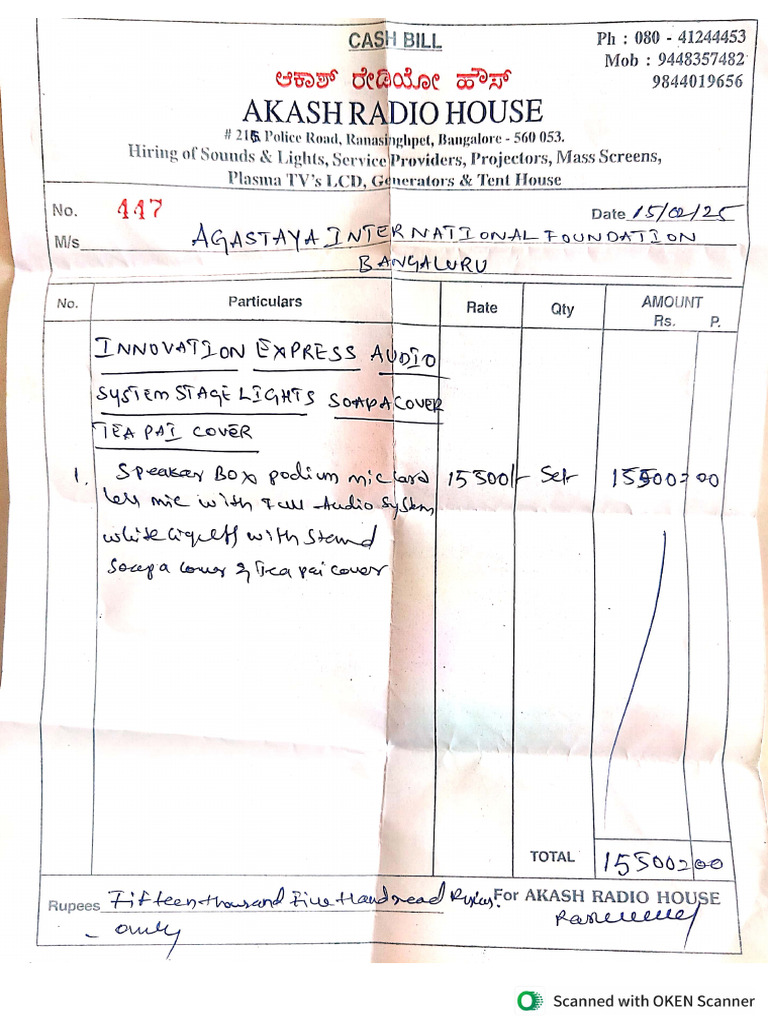 CASH BILL
Ph : 080 - 41244453
Mob : 9448357482
9844019656
ಆಕಾಶ್ ರೇಡಿಯೋ ಹೌಸ್
AKASH RADIO HOUSE
# 215, Police Road, Ranasinghpet, Bangalore - 560 053.
Hiring of Sounds & Lights, Service Providers, Projectors, Mass Screens,
Plasma TV's LCD, Generators & Tent House
No. 447 Date 15/02/25
M/s AGASTAYA INTERNATIONAL FOUNDATION
BANGALURU
No. Particulars Rate Qty AMOUNT
Rs. P.
INNOVATION EXPRESS AUDIO
SYSTEM STAGE LIGHTS SOAPA COVER
TEA PAI COVER
1. Speaker Box podium mic card 15500/- Set 15500=00
less mic with Full Audio System
white with Stand
Soapa cover & Tea pai cover
TOTAL 15500=00
Rupees Fifteen thousand Five Handread Rupees. For AKASH RADIO HOUSE
- only
Scanned with OKEN Scanner